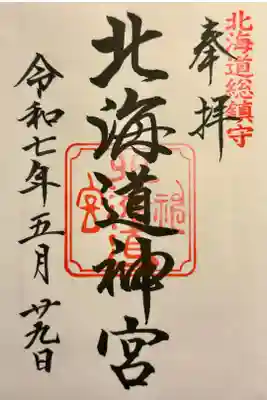 北海道総鎮守
奉拝
北海道神宮
令和七年五月廿九日